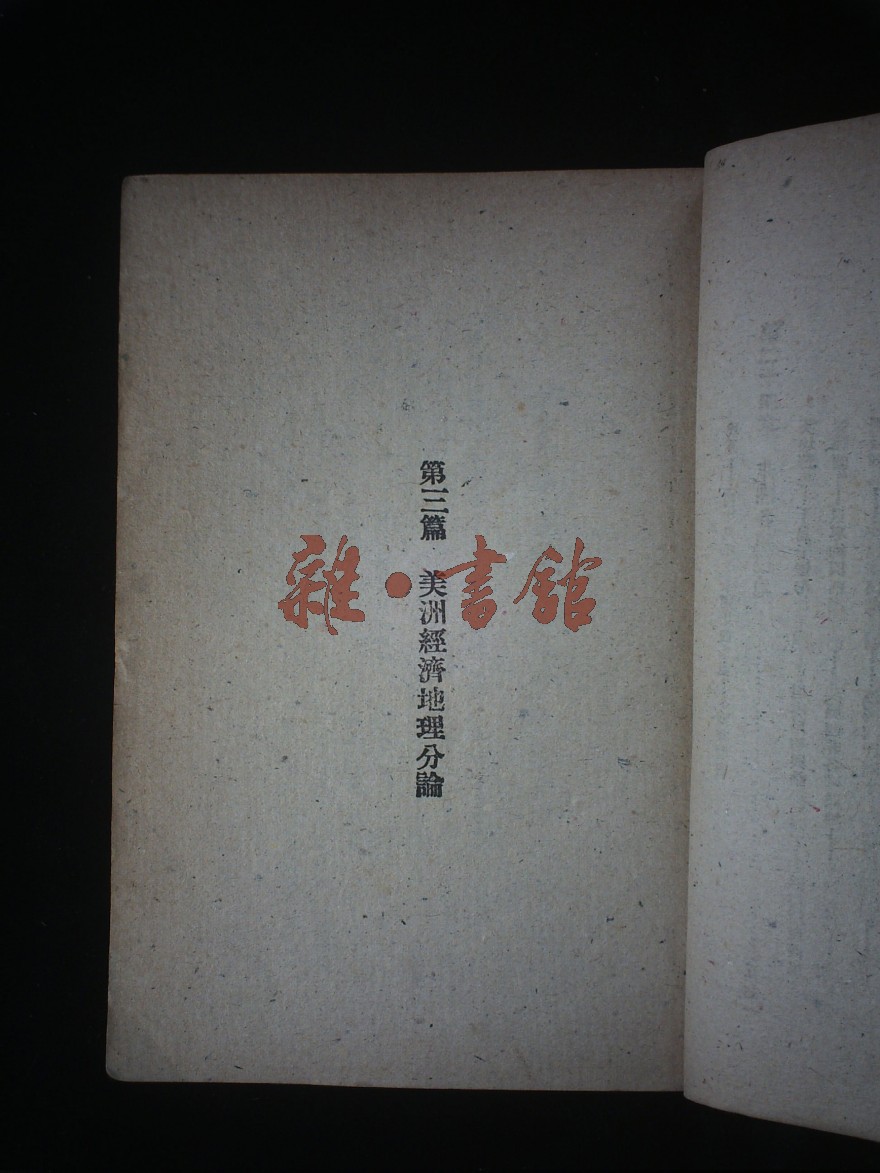 第三篇 美洲經濟地理分論
雜·書館